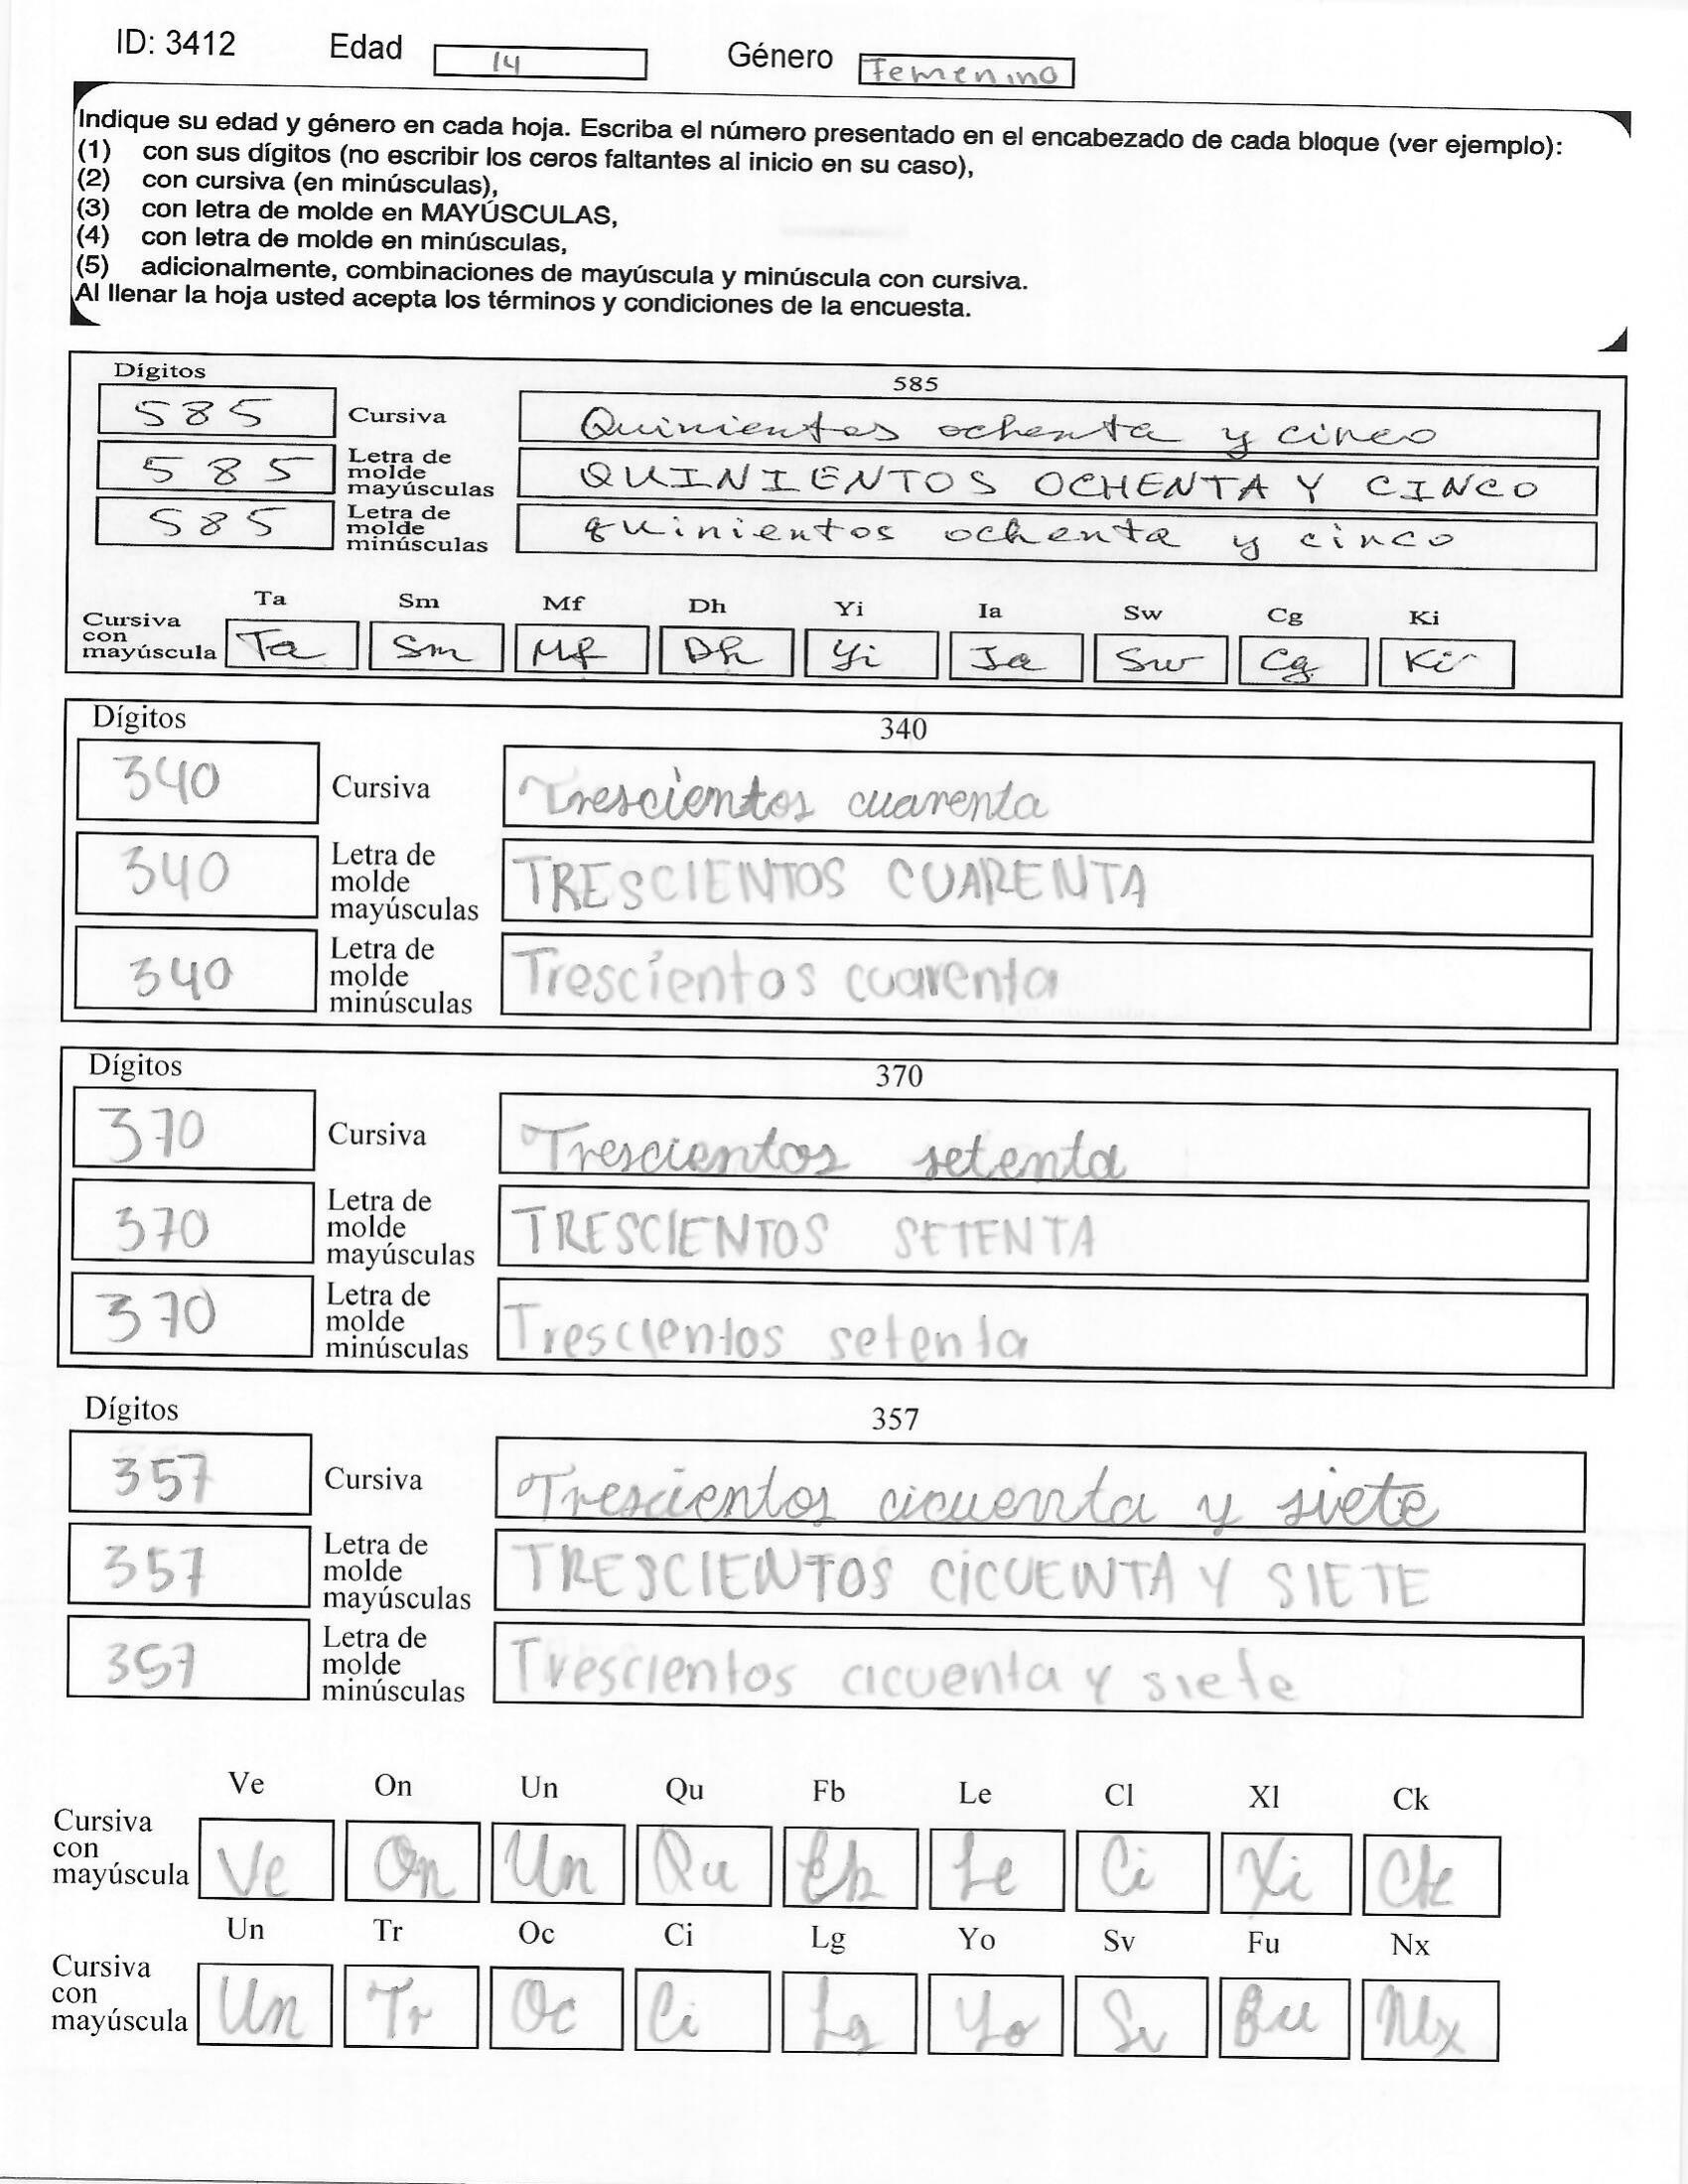 ID: 3412 Edad 14 Género Femenino
Indique su edad y género en cada hoja. Escriba el número presentado en el encabezado de cada bloque (ver ejemplo):
(1) con sus dígitos (no escribir los ceros faltantes al inicio en su caso),
(2) con cursiva (en minúsculas),
(3) con letra de molde en MAYÚSCULAS,
(4) con letra de molde en minúsculas,
(5) adicionalmente, combinaciones de mayúscula y minúscula con cursiva.
Al llenar la hoja usted acepta los términos y condiciones de la encuesta.
Dígitos 585
585 Cursiva Quinientos ochenta y cinco
585 Letra de molde mayúsculas QUINIENTOS OCHENTA Y CINCO
585 Letra de molde minúsculas quinientos ochenta y cinco
Ta Sm Mf Dh Yi Ia Sw Cg Ki
Cursiva con mayúscula Ta Sm Mf Dh Yi Ia Sw Cg Ki
Dígitos 340
340 Cursiva Trescientos cuarenta
340 Letra de molde mayúsculas TRESCIENTOS CUARENTA
340 Letra de molde minúsculas Trescientos cuarenta
Dígitos 370
370 Cursiva Trescientos setenta
370 Letra de molde mayúsculas TRESCIENTOS SETENTA
370 Letra de molde minúsculas Trescientos setenta
Dígitos 357
357 Cursiva Trescientos cicuenta y siete
357 Letra de molde mayúsculas TRESCIENTOS CICUENTA Y SIETE
357 Letra de molde minúsculas Trescientos cicuenta y siete
Ve On Un Qu Fb Le Cl Xl Ck
Cursiva con mayúscula Ve On Un Qu Le Ci Xi Ck
Un Tr Oc Ci Lg Yo Sv Fu Nx
Cursiva con mayúscula Un Tr Oc Ci Lg Yo Sv Nx